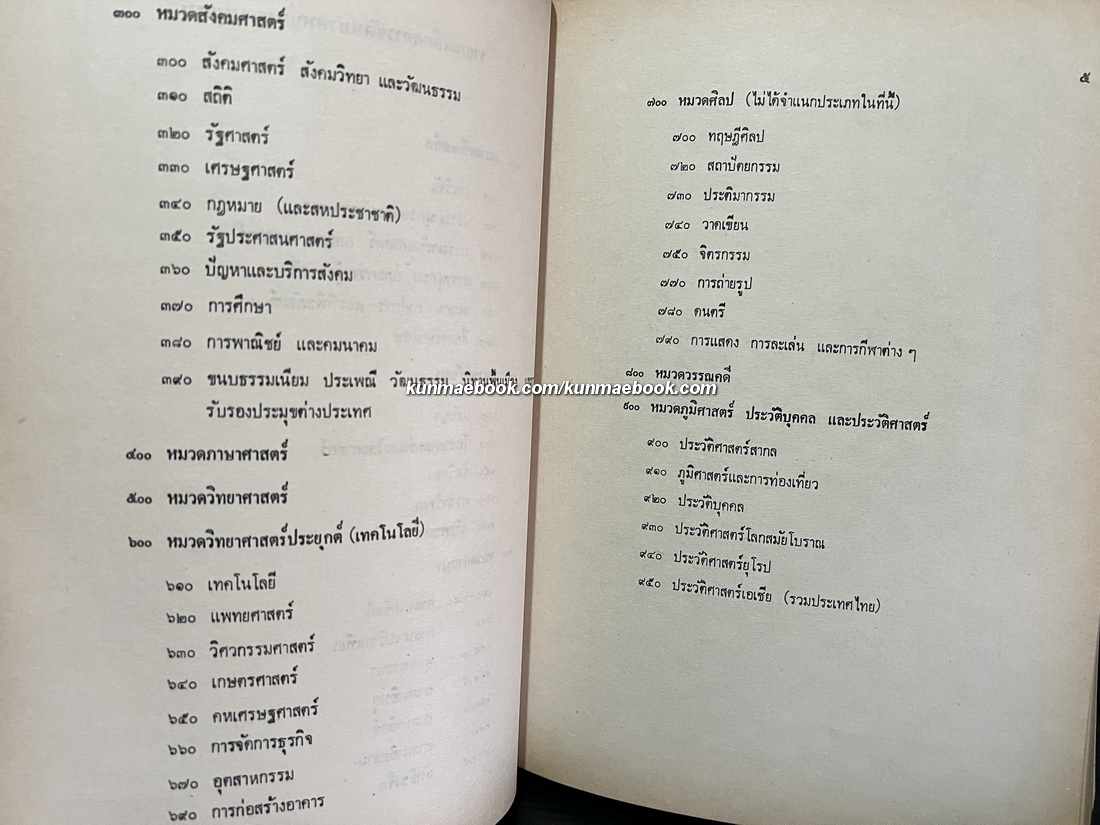 ๓๐๐ หมวดสังคมศาสตร์
๓๐๐ สังคมศาสตร์ สังคมวิทยา และวัฒนธรรม
๓๑๐ สถิติ
๓๒๐ รัฐศาสตร์
๓๓๐ เศรษฐศาสตร์
๓๔๐ กฎหมาย (และสหประชาชาติ)
๓๕๐ รัฐประศาสนศาสตร์
๓๖๐ ปัญหาและบริการสังคม
๓๗๐ การศึกษา
๓๘๐ การพาณิชย์ และคมนาคม
๓๙๐ ขนบธรรมเนียม ประเพณี วัฒนธรรม นิทานพื้นเมือง
รับรองประมุขต่างประเทศ
๔๐๐ หมวดภาษาศาสตร์
๕๐๐ หมวดวิทยาศาสตร์
๖๐๐ หมวดวิทยาศาสตร์ประยุกต์ (เทคโนโลยี)
๖๑๐ เทคโนโลยี
๖๒๐ แพทยศาสตร์
๖๓๐ วิศวกรรมศาสตร์
๖๔๐ เกษตรศาสตร์
๖๕๐ คหเศรษฐศาสตร์
๖๖๐ การจัดการธุรกิจ
๖๗๐ อุตสาหกรรม
๖๙๐ การก่อสร้างอาคาร
๕
๗๐๐ หมวดศิลป (ไม่ได้จำแนกประเภทในที่นี้)
๗๐๐ ทฤษฎีศิลป
๗๒๐ สถาปัตยกรรม
๗๓๐ ประติมากรรม
๗๔๐ วาดเขียน
๗๕๐ จิตรกรรม
๗๗๐ การถ่ายรูป
๗๘๐ ดนตรี
๗๙๐ การแสดง การละเล่น และการกีฬาต่าง ๆ
๘๐๐ หมวดวรรณคดี
๙๐๐ หมวดภูมิศาสตร์ ประวัติบุคคล และประวัติศาสตร์
๙๐๐ ประวัติศาสตร์สากล
๙๑๐ ภูมิศาสตร์และการท่องเที่ยว
๙๒๐ ประวัติบุคคล
๙๓๐ ประวัติศาสตร์โลกสมัยโบราณ
๙๔๐ ประวัติศาสตร์ยุโรป
๙๕๐ ประวัติศาสตร์เอเชีย (รวมประเทศไทย)
kunmaebook.com/kunmaebook.com